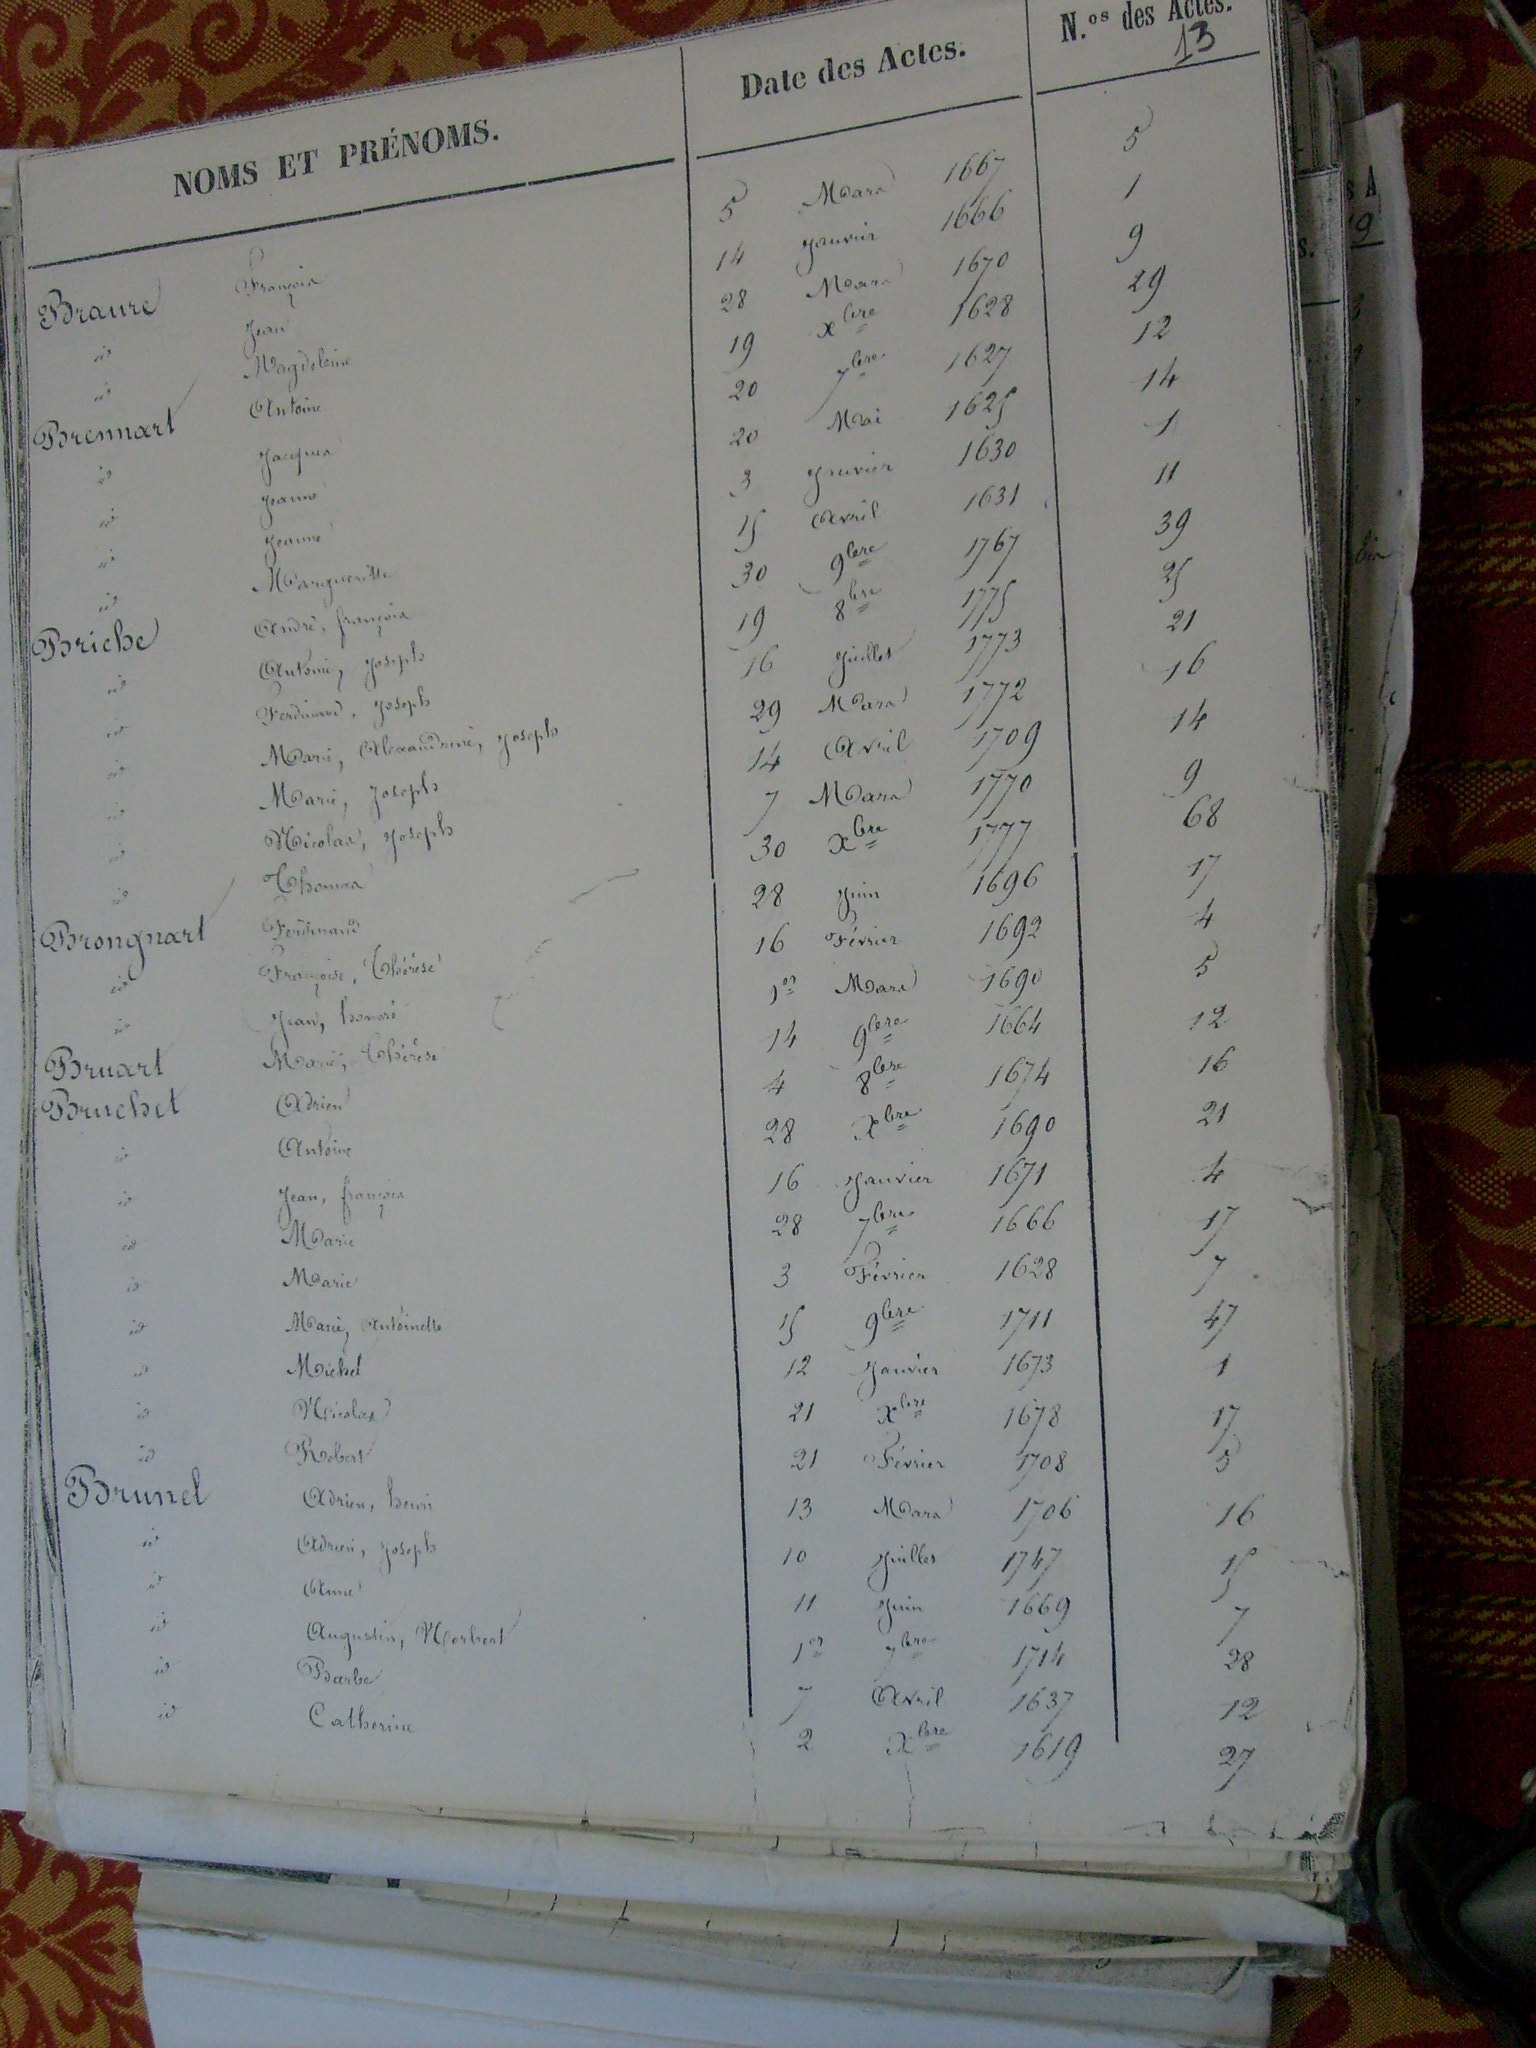 NOMS ET PRÉNOMS. Date des Actes. N.os des Actes.
13
Braure François 5 Mars 1667 5
id Jean 14 Janvier 1666 1
id Magdeleine 28 Mars 1670 9
Brennart Antoine 19 Xbre 1628 29
id Jacques 20 7bre 1627 12
id Jeanne 20 Mai 1625 14
id Jeanne 3 Janvier 1630 1
id Margueritte 15 Avril 1631 11
Briche André, françois 30 9bre 1767 39
id Antoine, Joseph 19 8bre 1775 25
id Ferdinand, Joseph 16 Juillet 1773 21
id Marie, Alexandrine, Joseph 29 Mars 1772 16
id Marie, Joseph 14 Avril 1709 14
id Nicolas, Joseph 7 Mars 1770 9
id Thomas 30 Xbre 1777 68
Brongnart Ferdinand 28 Juin 1696 17
id Françoise, Thérèse 16 Février 1692 4
id Jean, honoré 1er Mars 1690 5
Bruart Marie, Thérèse 14 9bre 1664 12
Bruchet Adrien 4 8bre 1674 16
id Antoine 28 Xbre 1690 21
id Jean, françois 16 Janvier 1671 4
id Marie 28 7bre 1666 17
id Marie 3 Février 1628 7
id Marie, Antoinette 15 9bre 1711 47
id Michel 12 Janvier 1673 1
id Nicolas 21 Xbre 1678 17
id Robert 21 Février 1708 5
Brunel Adrien, henri 13 Mars 1706 16
id Adrien, Joseph 10 Juillet 1747 15
id Anne 11 Juin 1669 7
id Augustin, Norbert 1er 7bre 1714 28
id Barbe 7 Avril 1637 12
id Catherine 2 Xbre 1619 27